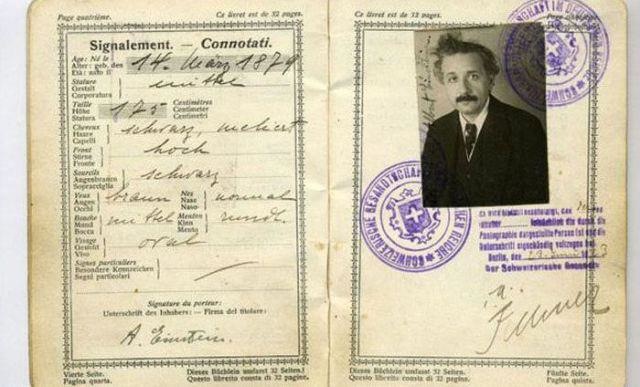 Page quatrième. Ce livret est de 32 pages.
Signalement. — Connotati.
Age: Né le
Alter: geb. den 14. März 1879
Età: nato il
Stature
Gestalt mittel
Corporatura
Taille Centimètres
Höhe 175 Centimeter
Statura Centimetri
Cheveux
Haare schwarz, meliert
Capelli
Front
Stirne hoch
Fronte
Sourcils
Augenbrauen schwarz
Sopracciglia
Yeux Nez
Augen braun Nase normal
Occhi Naso
Bouche Menton
Mund mittel Kinn rund
Bocca Mento
Visage
Gesicht oval
Viso
Signes particuliers
Besondere Kennzeichen
Segni particolari
Signature du porteur:
Unterschrift des Inhabers: — Firma del titolare:
A. Einstein.
Vierte Seite. Dieses Büchlein umfasst 32 Seiten.
Pagina quarta. Questo libretto consta di 32 pagine.
Page cinquième. Ce livret est de 32 pages.
SCHWEIZERISCHE GESANDTSCHAFT REICHE
Photographie dargestellte Person ist und die
Unterschrift eigenhändig vollzogen hat.
Berlin, den
der Schweizerische Gesandte
i. A.
Dieses Büchlein umfasst 32 Seiten. Fünfte Seite.
Questo libretto consta di 32 pagine. Pagina quinta.